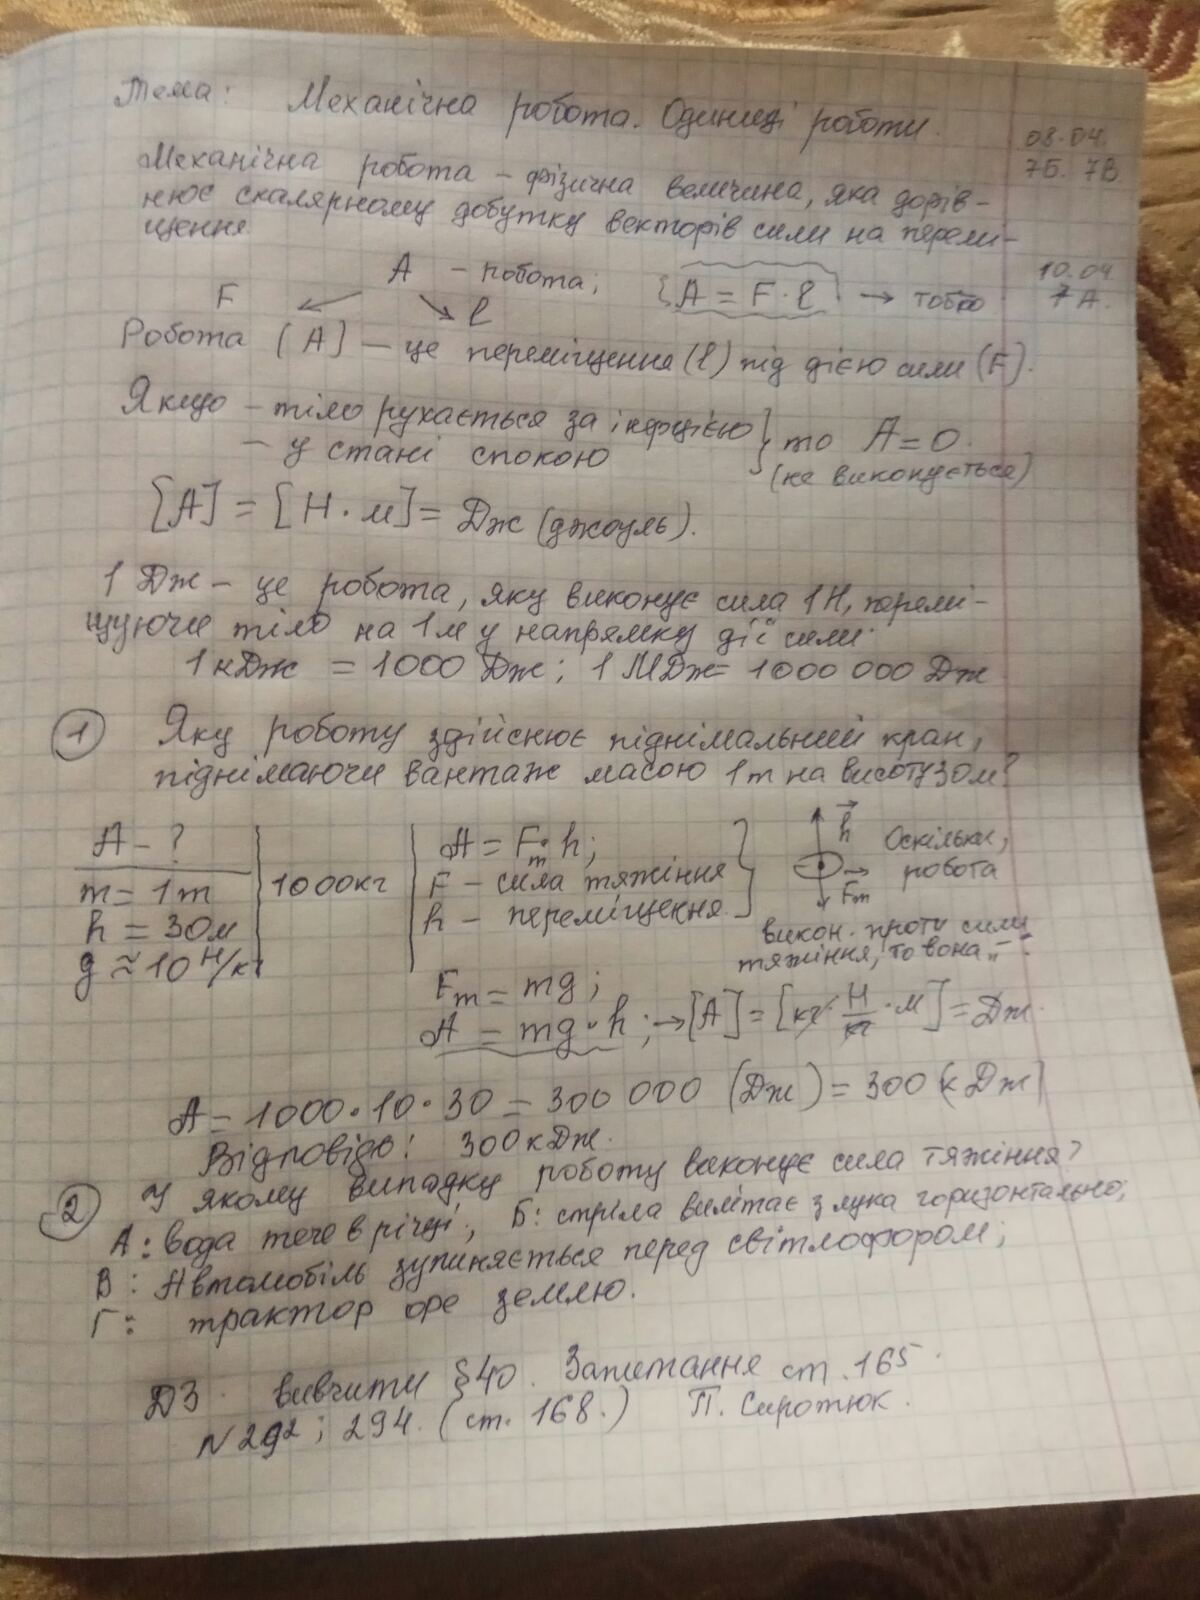 Тема: Механічна робота. Одиниці роботи.
08.04.
7Б. 7В.
Механічна робота – фізична величина, яка дорів-
нює скалярному добутку векторів сили на перемі-
щення
A – робота; A = F · l → тобто
10.04
7А.
F l
Робота (A) – це переміщення (l) під дією сили (F).
Якщо – тіло рухається за інерцією
– у стані спокою
то A = 0.
(не виконується)
[A] = [Н · м] = Дж (джоуль).
1 Дж – це робота, яку виконує сила 1Н, перемі-
щуючи тіло на 1м у напрямку дії сили.
1 кДж = 1000 Дж; 1 МДж = 1000 000 Дж
1 Яку роботу здійснює піднімальний кран,
піднімаючи вантаж масою 1т на висоту 30м?
A – ?
m = 1т
h = 30м
g ≈ 10 Н/кг
1000кг
A = Fт · h;
F – сила тяжіння
h – переміщення
h
Fт
Оскільки,
робота
викон. проти сили
тяжіння, то вона „–“.
Fт = mg;
A = mg · h; → [A] = [кг · Н/кг · м] = Дж.
A = 1000 · 10 · 30 = 300 000 (Дж) = 300 (кДж)
Відповідь: 300 кДж.
2 У якому випадку роботу виконує сила тяжіння?
А: вода тече в річці; Б: стріла вилітає з лука горизонтально;
В: Автомобіль зупиняється перед світлофором;
Г: трактор оре землю.
ДЗ. вивчити §40. Запитання ст. 165.
N 292; 294. (ст. 168.) П. Сиротюк.